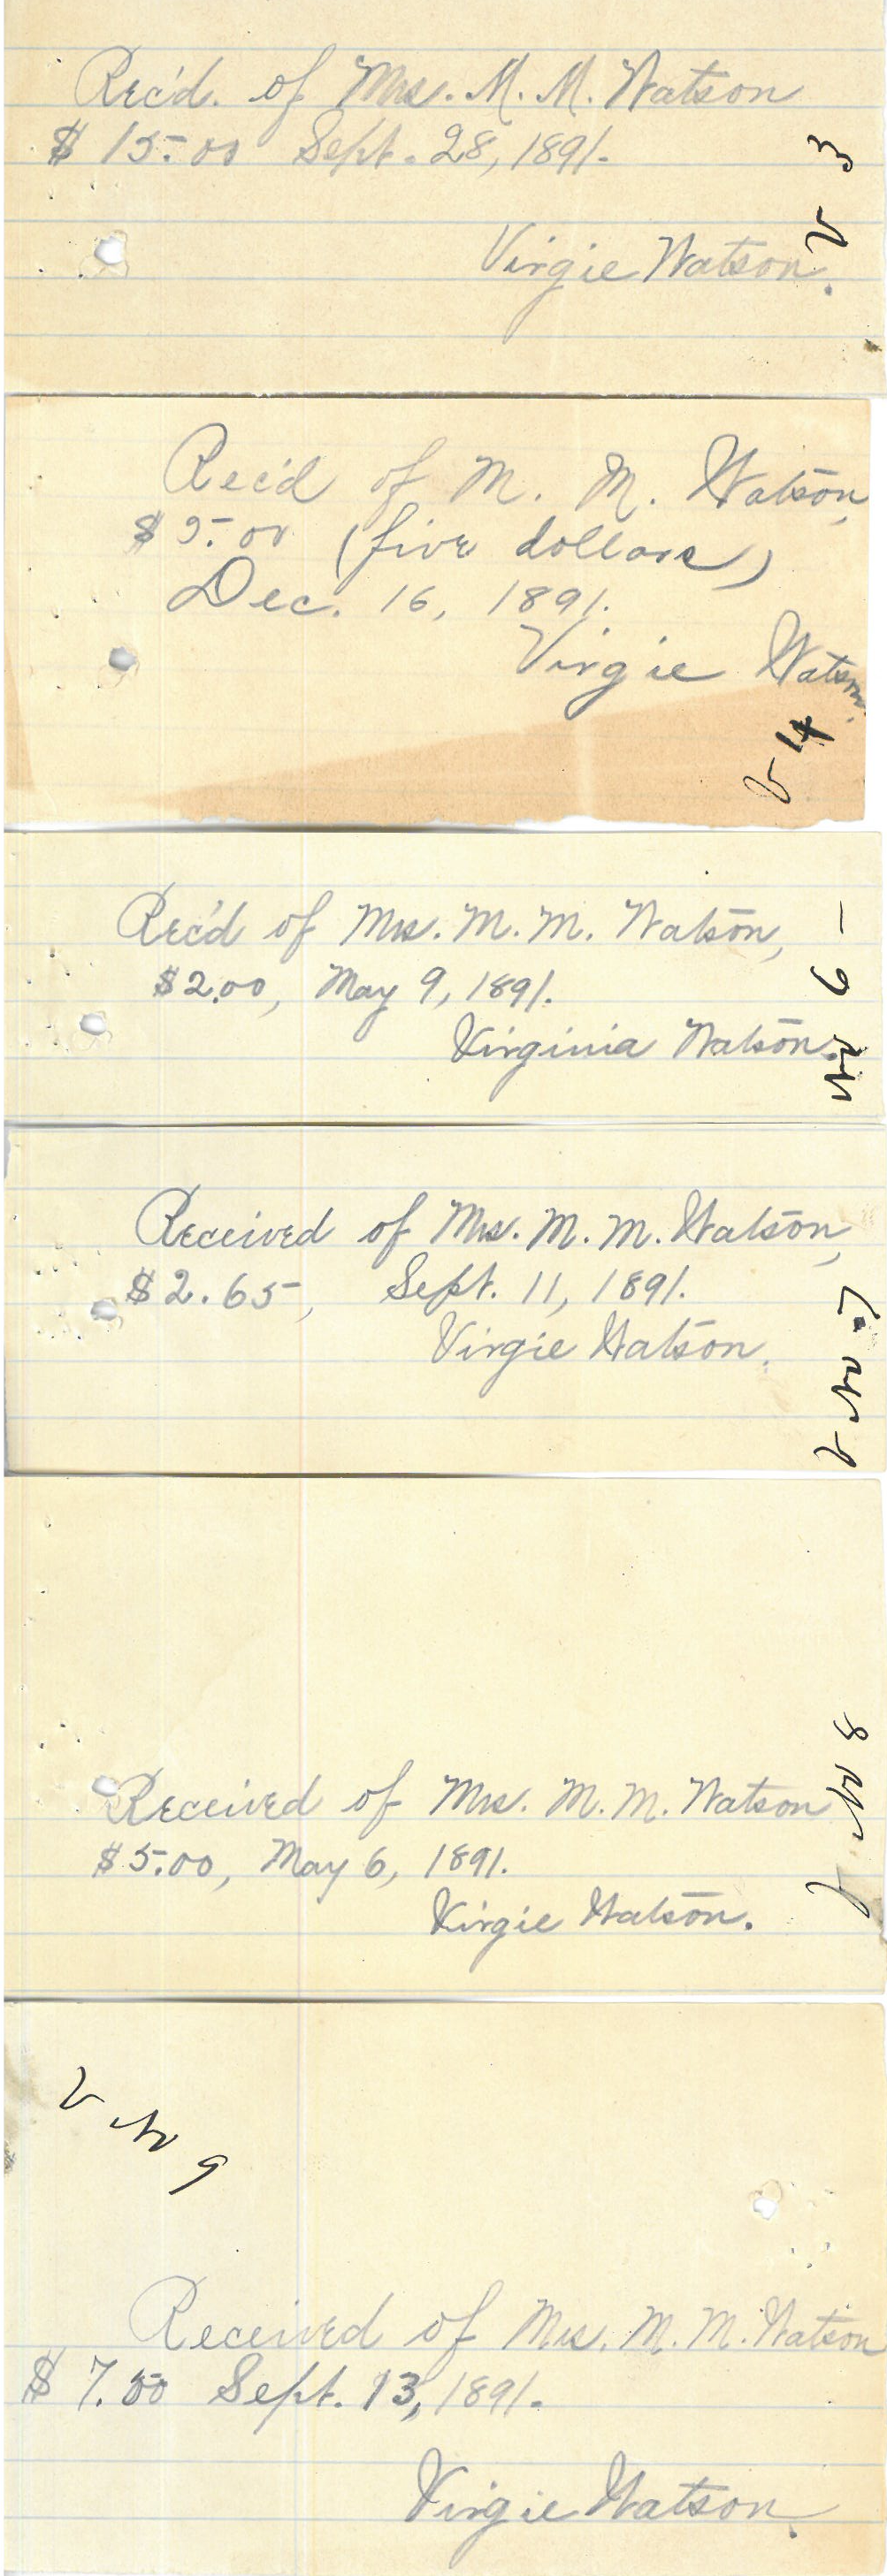 Rec'd. of Mrs. M. M. Watson
$15.00 Sept. 28, 1891.
Virgie Watson.
V 3
Rec'd of M. M. Watson,
$5.00 (five dollars)
Dec. 16, 1891.
Virgie Watson.
V 4
Rec'd of Mrs. M. M. Watson,
$2.00, May 9, 1891.
Virginia Watson.
No 6 -
Received of Mrs. M. M. Watson,
$2.65, Sept. 11, 1891.
Virgie Watson.
V No 7
Received of Mrs. M. M. Watson
$5.00, May 6, 1891.
Virgie Watson.
V No 8
V No 9
Received of Mrs. M. M. Watson
$7.50 Sept. 13, 1891.
Virgie Watson.